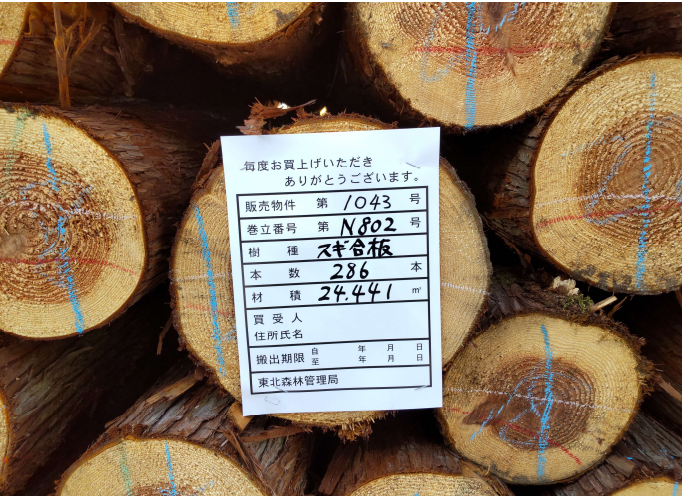 毎度お買上げいただき
ありがとうございます。
販売物件 第 1043 号
巻立番号 第 N802 号
樹 種 スギ合板
本 数 286 本
材 積 24.441 ㎥
買 受 人
住所氏名
搬出期限 自 年 月 日
至 年 月 日
東北森林管理局